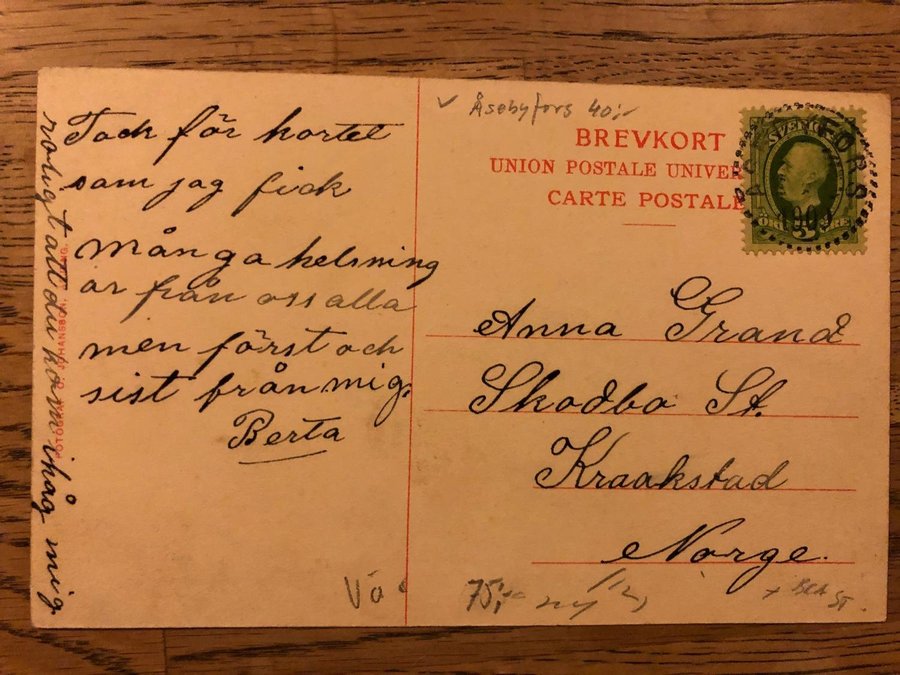 Tack för kortet
som jag fick
många helsning
ar från oss alla
men först och
sist från mig.
Berta
roligt att du kom ihåg mig
Åsebyfors 40:-
BREVKORT
UNION POSTALE UNIVER
CARTE POSTALE
SVERIGE
FORS
Anna Grand
Skodbo St.
Kraakstad
Norge.
75:-